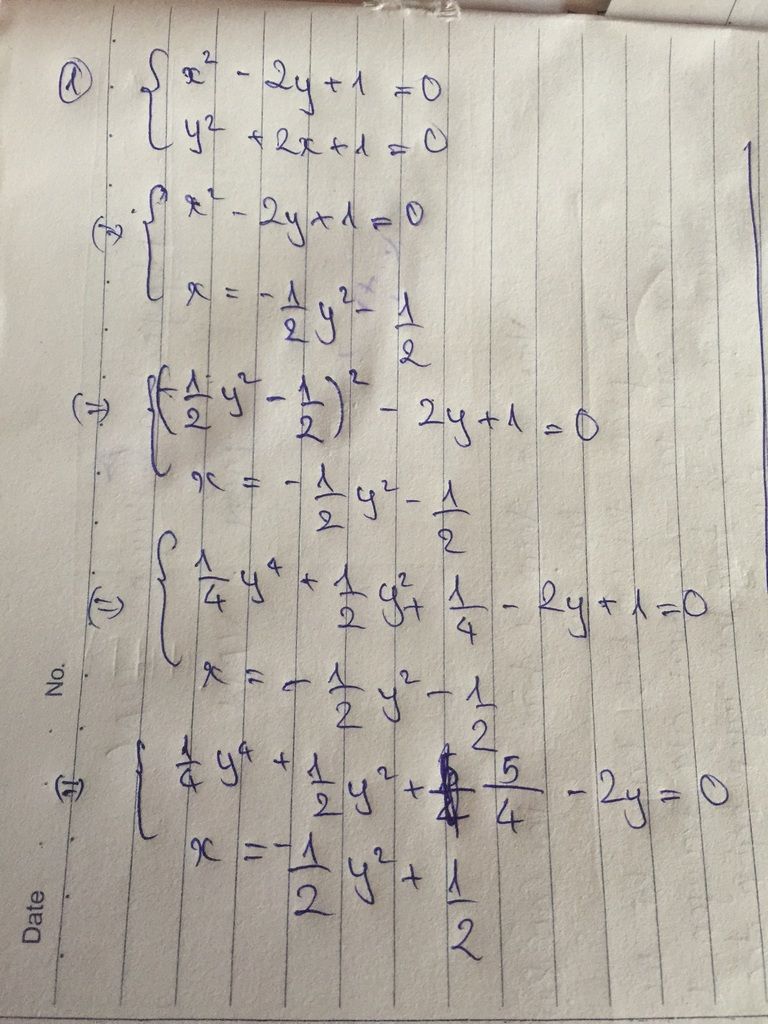 ① { x² - 2y + 1 = 0
y² + 2x + 1 = 0
(1) { x² - 2y + 1 = 0
x = -1/2 y² - 1/2
(1) { (-1/2 y² - 1/2)² - 2y + 1 = 0
x = -1/2 y² - 1/2
(1) { 1/4 y⁴ + 1/2 y² + 1/4 - 2y + 1 = 0
x = -1/2 y² - 1/2
(1) { 1/4 y⁴ + 1/2 y² + 5/4 - 2y = 0
x = -1/2 y² + 1/2
No.
Date